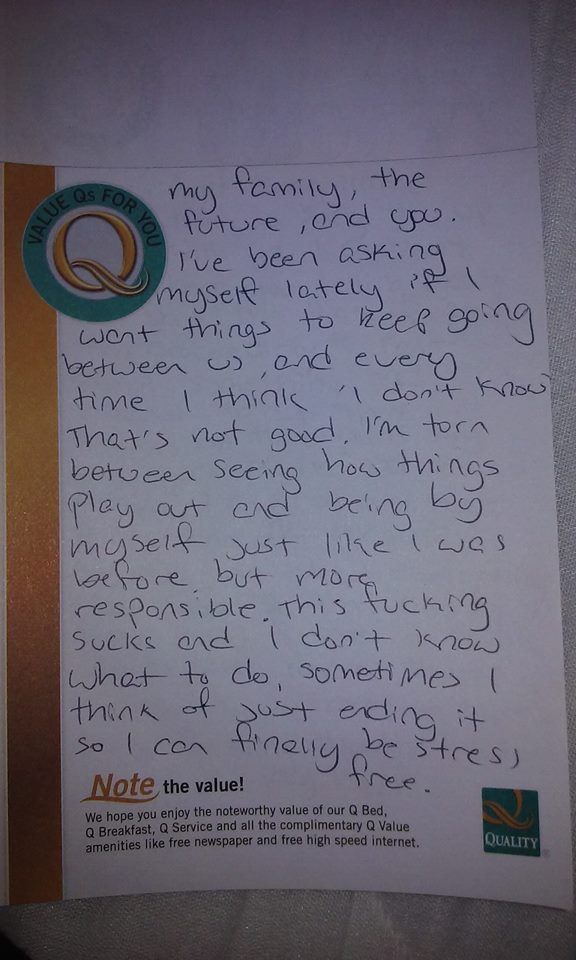 VALUE Qs FOR YOU
Q
my family, the
future, and you.
I've been asking
myself lately if I
want things to keep going
between us, and every
time I think "I don't know"
That's not good. I'm torn
between seeing how things
play out and being by
myself just like I was
before, but more
responsible. This fucking
sucks and I don't know
what to do, sometimes I
think of just ending it
so I can finally be stress
free.
Note the value!
We hope you enjoy the noteworthy value of our Q Bed,
Q Breakfast, Q Service and all the complimentary Q Value
amenities like free newspaper and free high speed internet.
QUALITY